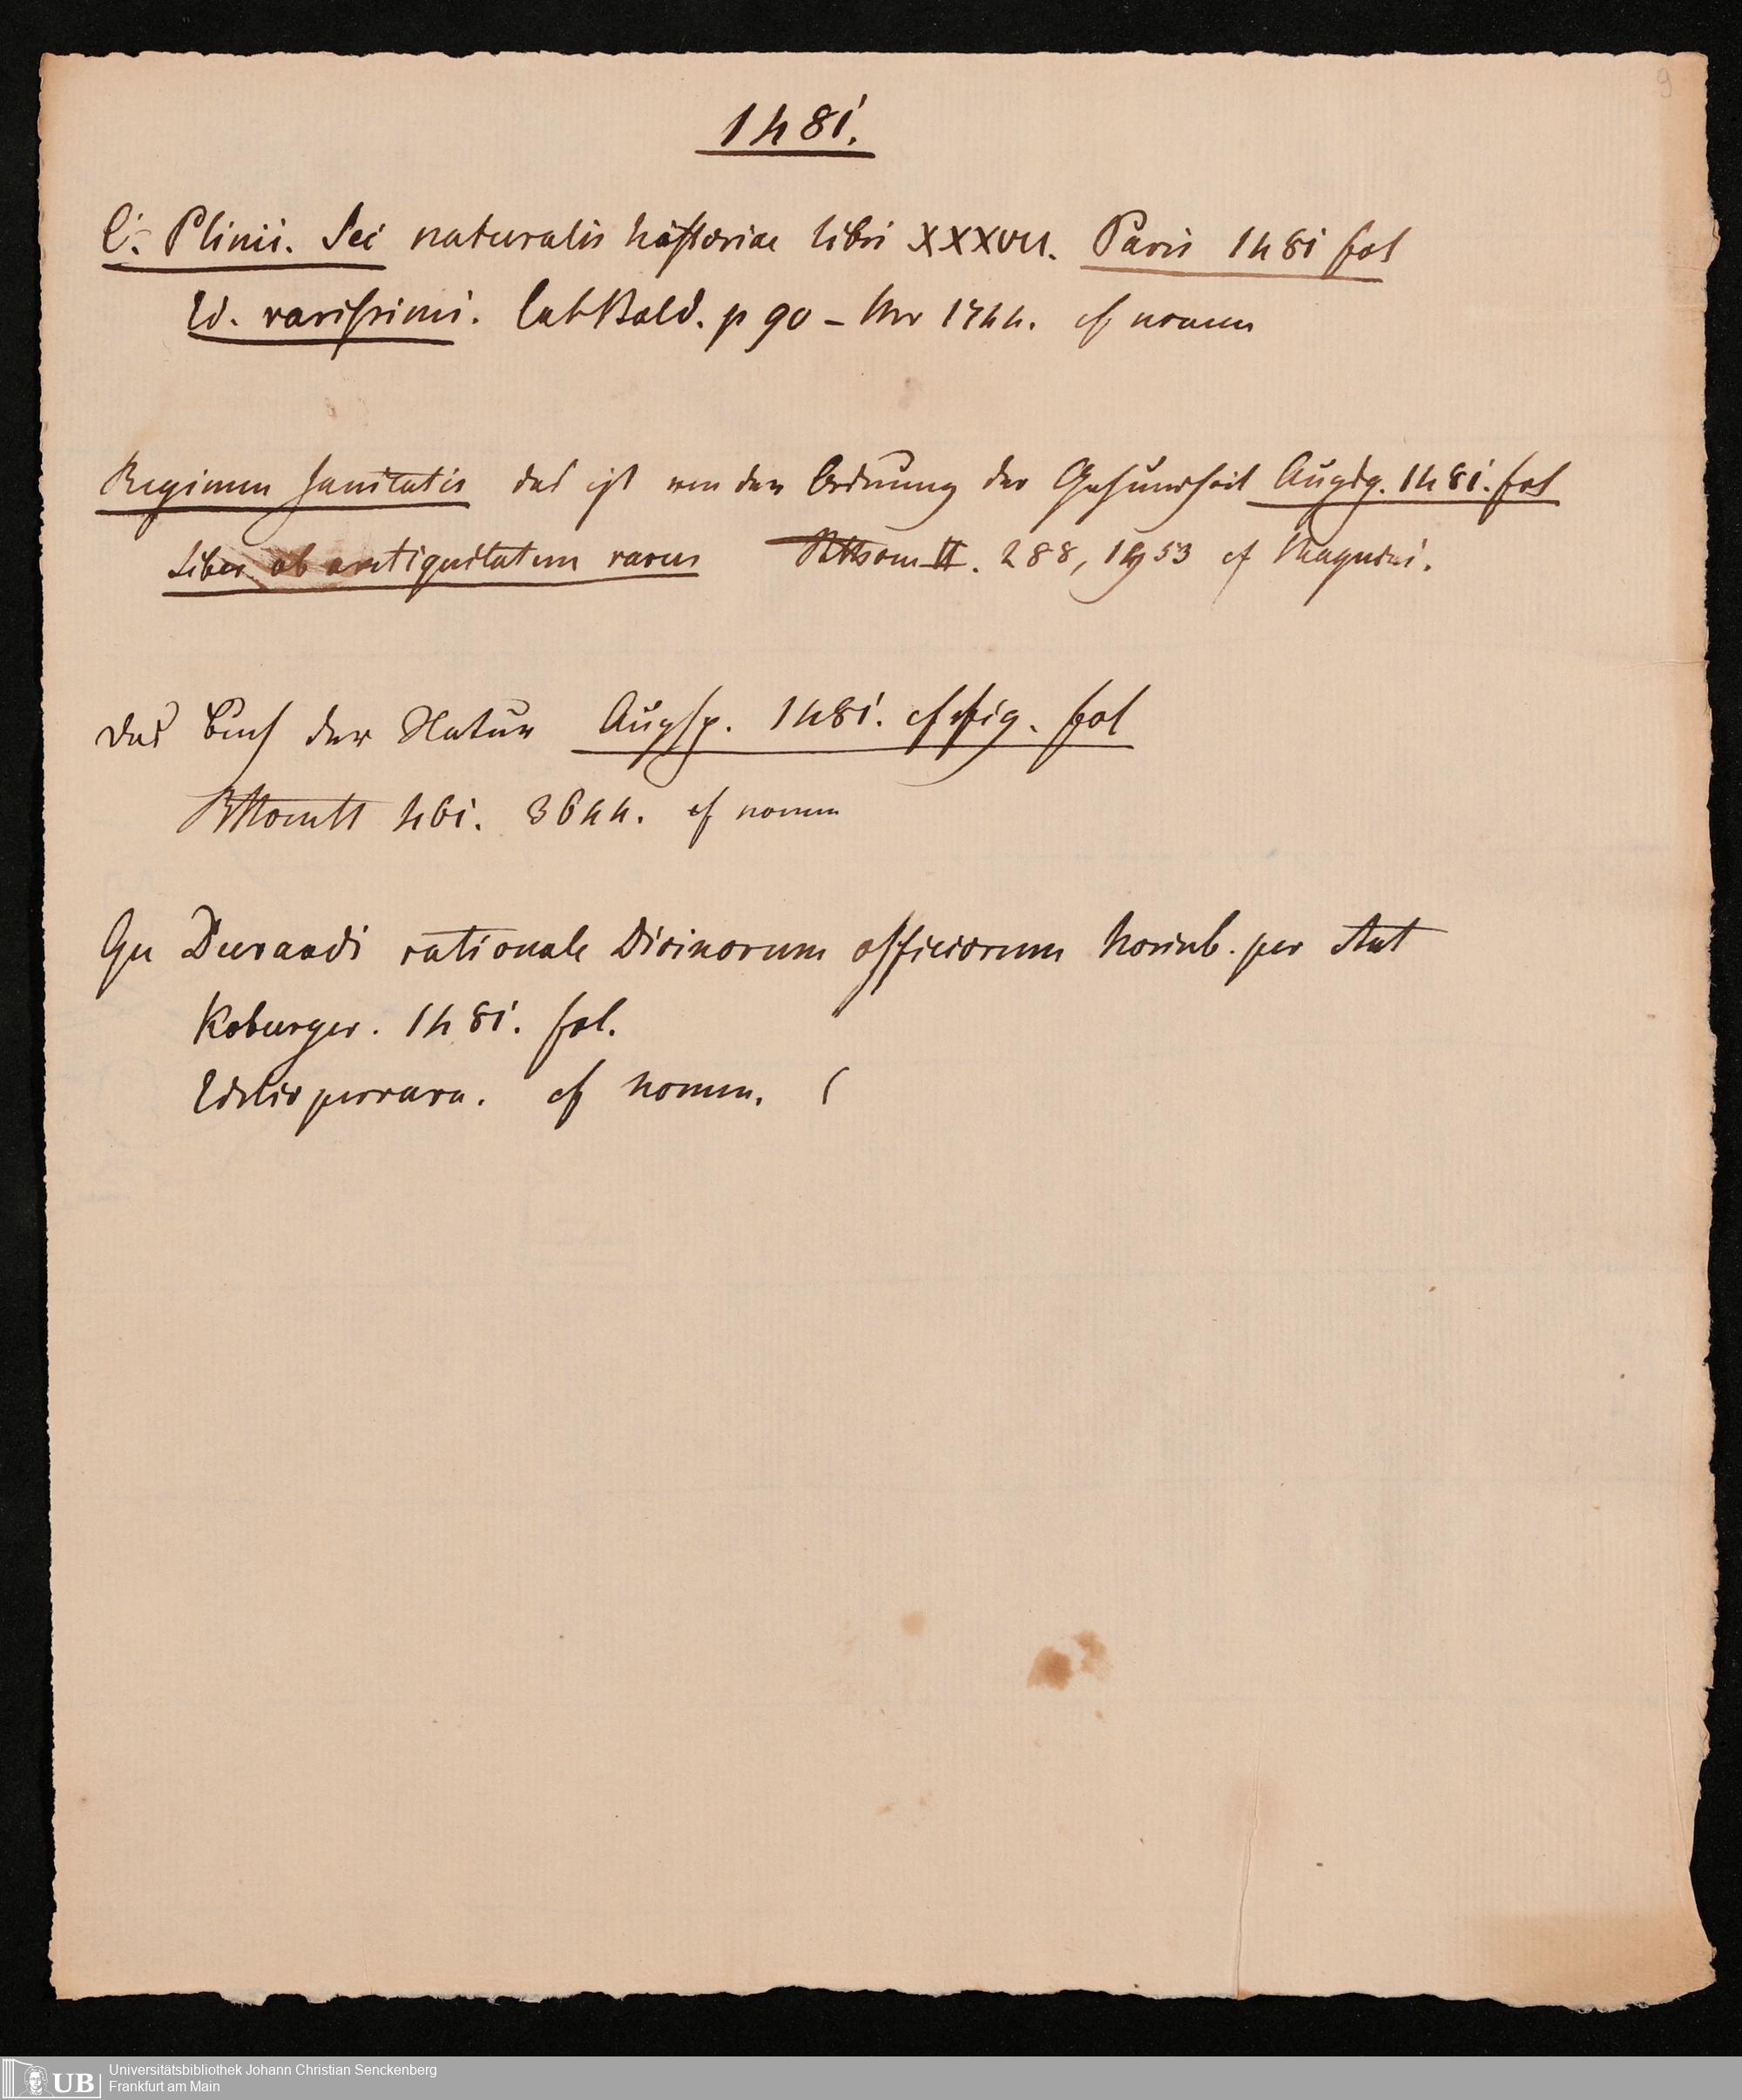 9
1481.
C. Plinii. Sei naturalis historiae libri XXXVII. Paris 1481 fol
Ed. rarissimi. Cat Bald. p 90 – Nr 1744. cf nomen
Regimen sanitatis das ist von der Ordnung der Gesundheit Augsbg. 1481. fol
Liber ob antiquitatem rarus II. 288, 1953 cf
Das Buch der Natur Augsp. 1481. c fig. fol
461. 3644. cf nomen
Gu Durandi rationale Divinorum officiorum Norimb. per Ant
Koburger. 1481. fol.
Editio perrara. cf nomen. (
UB
Universitätsbibliothek Johann Christian Senckenberg
Frankfurt am Main